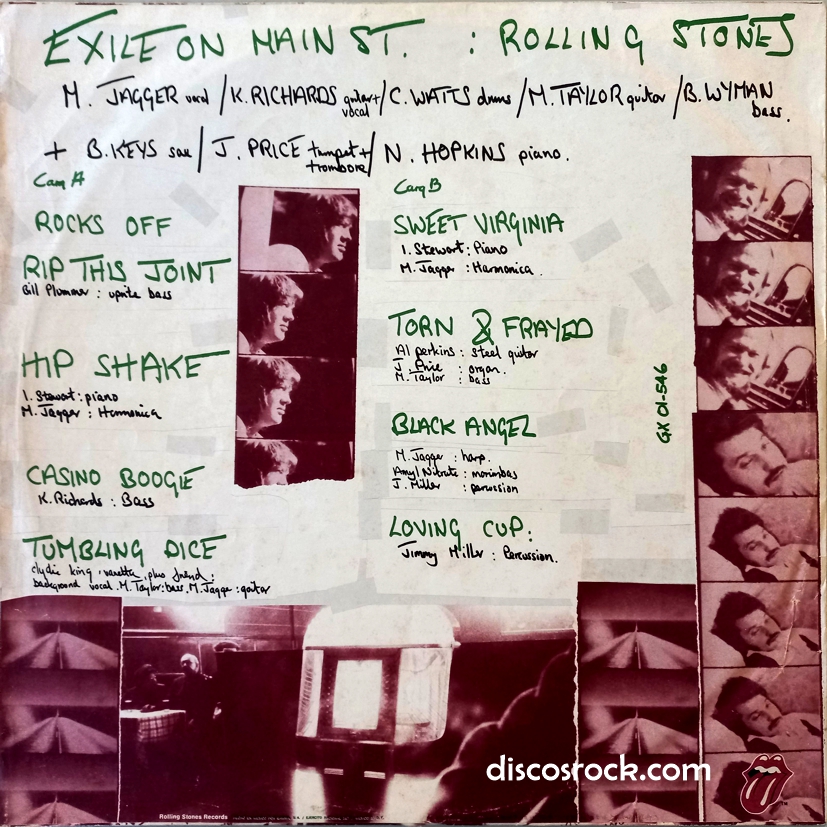 EXILE ON MAIN ST. : ROLLING STONES
M. JAGGER vocal / K. RICHARDS guitar + vocal / C. WATTS drums / M. TAYLOR guitar / B. WYMAN bass.
+ B. KEYS sax / J. PRICE trumpet + trombone / N. HOPKINS piano.
Cara A
ROCKS OFF
RIP THIS JOINT
Bill Plummer : uprite bass
HIP SHAKE
I. Stewart : piano
M. Jagger : Harmonica
CASINO BOOGIE
K. Richards : Bass
TUMBLING DICE
clydie king, vanetta, plus friend :
background vocal. M. Taylor : bass, M. Jagger : guitar
Cara B
SWEET VIRGINIA
I. Stewart : Piano
M. Jagger : Harmonica.
TORN & FRAYED
Al perkins : steel guitar
J. Price : organ.
M. Taylor : bass
BLACK ANGEL
M. Jagger : harp.
Amyl Nitrate : marimbas
J. Miller : percussion
LOVING CUP :
Jimmy Miller : Percussion.
GX 01-546
Rolling Stones Records
discosrock.com